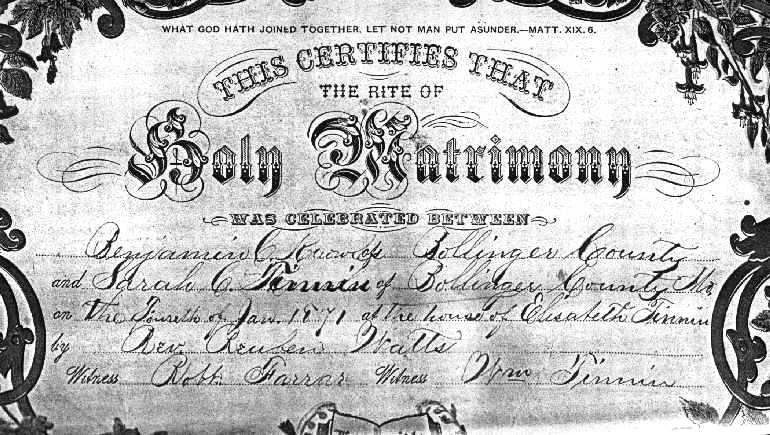 WHAT GOD HATH JOINED TOGETHER, LET NOT MAN PUT ASUNDER.—MATT. XIX. 6.
THIS CERTIFIES THAT
THE RITE OF
Holy Matrimony
WAS CELEBRATED BETWEEN
Benjamin C. of Bollinger County
and Sarah C. Tinnin of Bollinger County Mo
on the Fourth of Jan. 1871 at the house of Elisabeth Tinnin
by Rev. Reuben Watts
Witness Robt. Farrar Witness Wm Tinnin